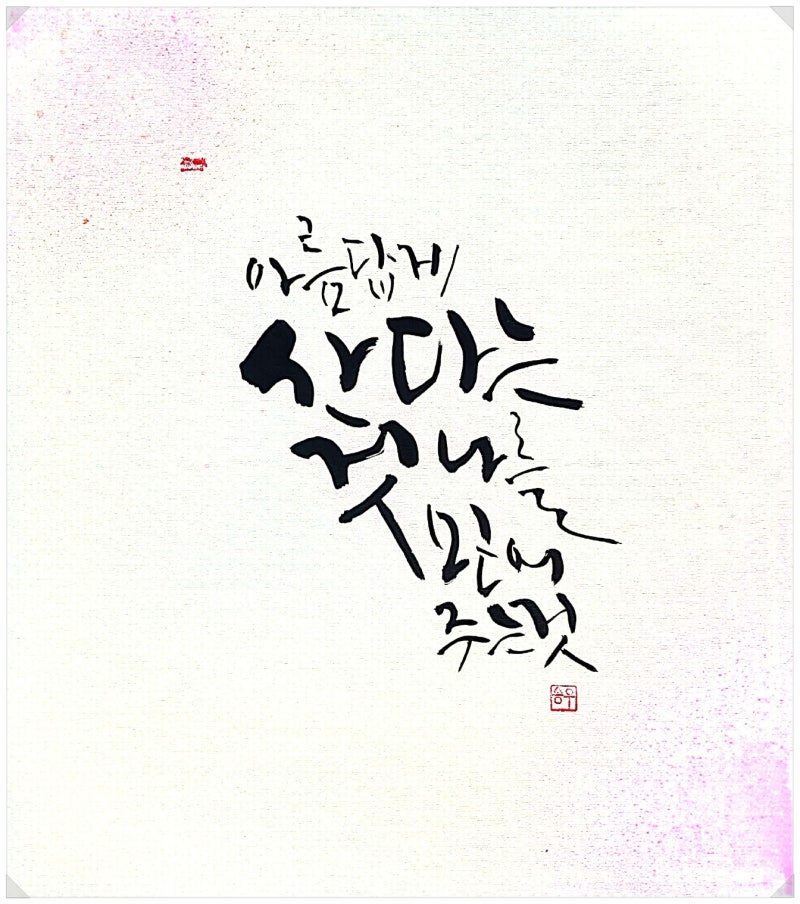 아름답게
산다는
것 나를
믿어
주는것